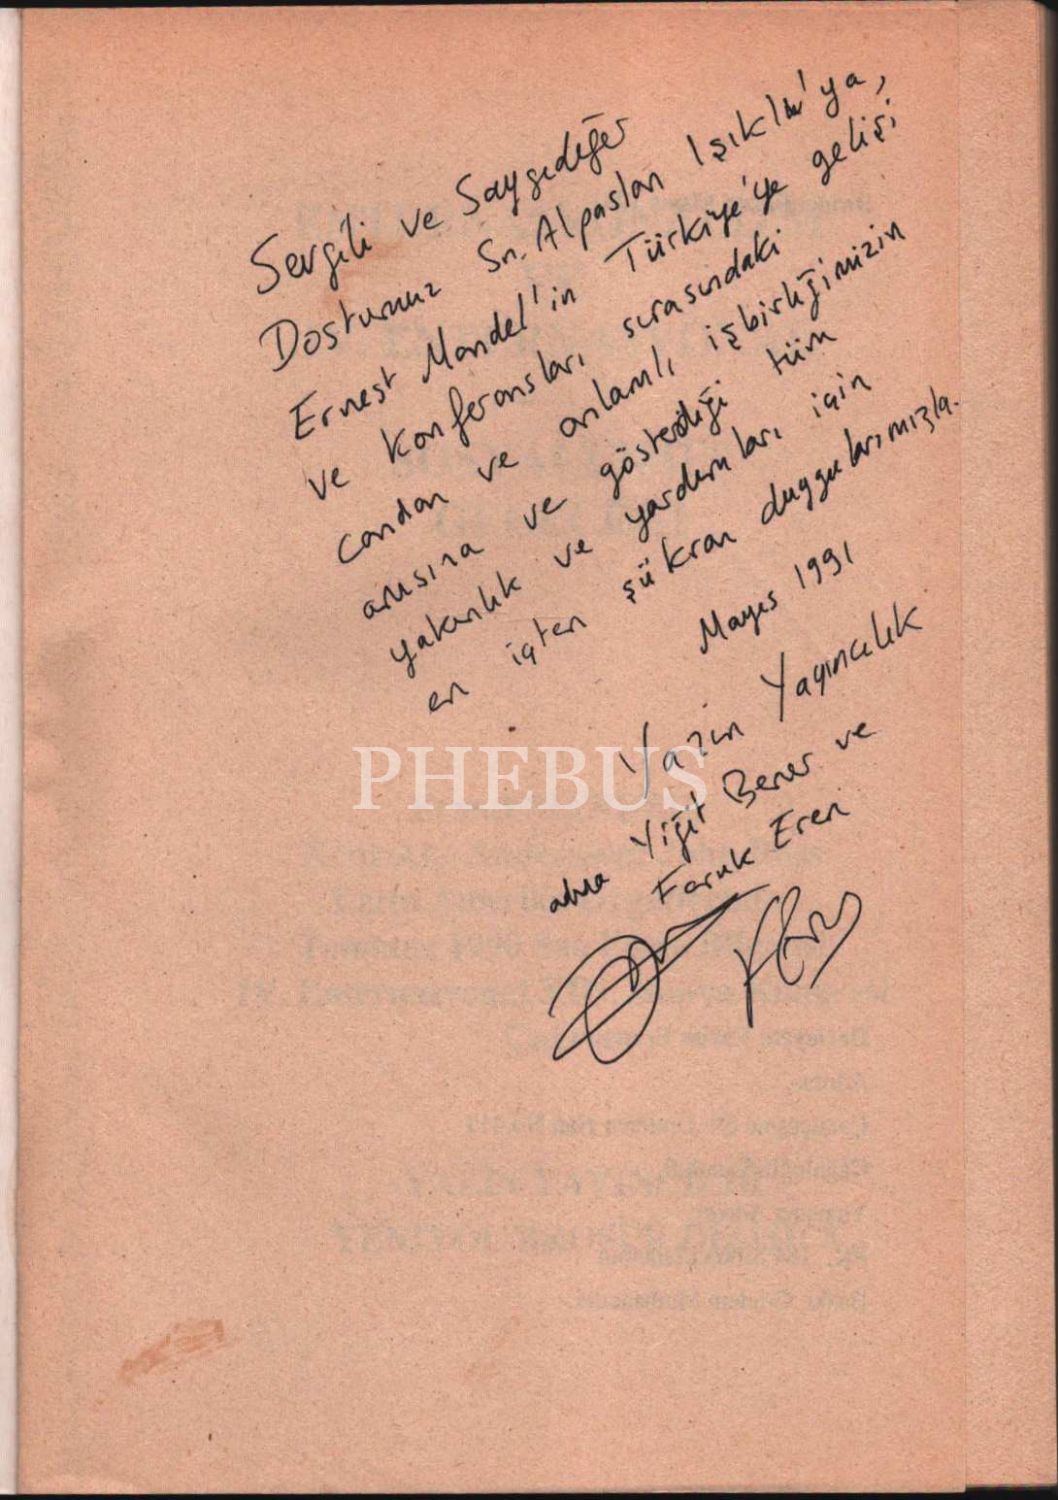 Sevgili ve Saygıdeğer
Dostumuz Sn. Alpaslan Işıklı'ya,
Ernest Mandel'in Türkiye'ye gelişi
ve konferansları sırasındaki
candan ve anlamlı işbirliğimizin
anısına ve gösterdiği tüm
yakınlık ve yardımları için
en içten şükran duygularımızla.
Mayıs 1991
Yazın Yayıncılık
adına Yiğit Bener ve
Faruk Eren
PHEBUS